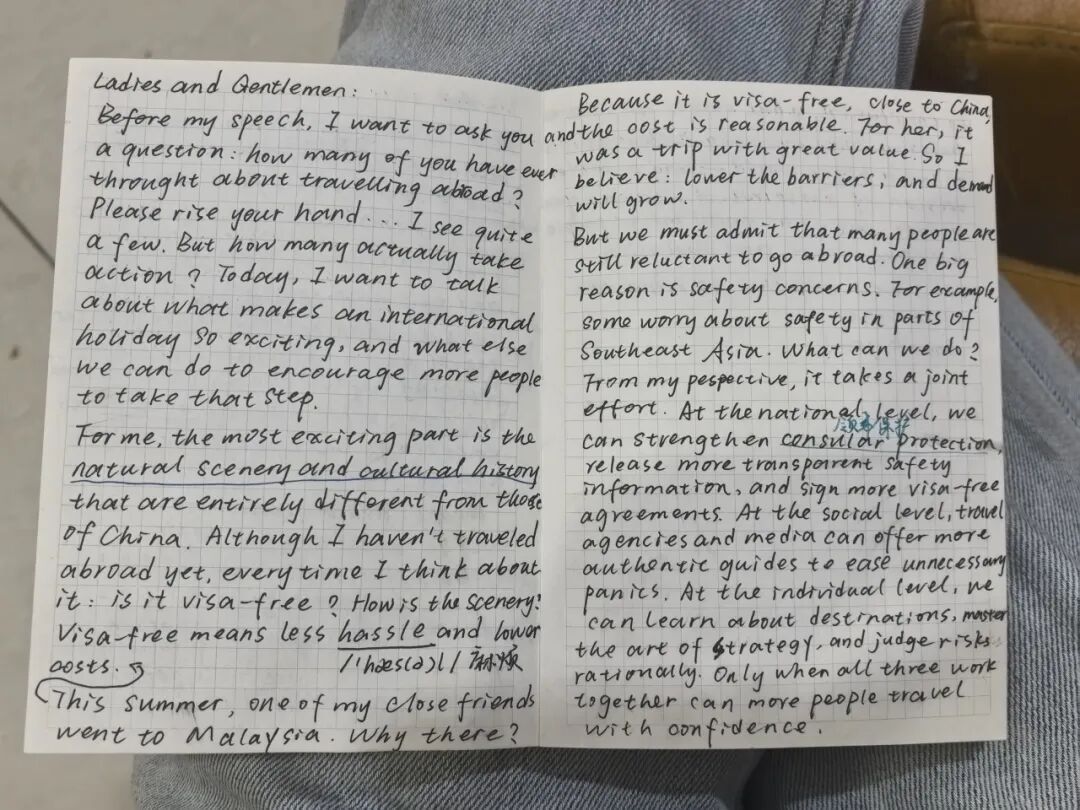 Ladies and Gentlemen:
Before my speech, I want to ask you
a question: how many of you have ever
throught about travelling abroad?
Please rise your hand... I see quite
a few. But how many actually take
action? Today, I want to talk
about what makes an international
holiday so exciting, and what else
we can do to encourage more people
to take that step.
For me, the most exciting part is the
natural scenery and cultural history
that are entirely different from those
of China. Although I haven't traveled
abroad yet, every time I think about
it: is it visa-free? How is the scenery?
Visa-free means less hassle and lower
costs.
/ˈhæs(ə)l/ 麻烦
This summer, one of my close friends
went to Malaysia. Why there?
Because it is visa-free, close to China,
and the cost is reasonable. For her, it
was a trip with great value. So I
believe: lower the barriers, and demand
will grow.
But we must admit that many people are
still reluctant to go abroad. One big
reason is safety concerns. For example,
some worry about safety in parts of
Southeast Asia. What can we do?
From my pespective, it takes a joint
effort. At the national level, we
领事保护
can strengthen consular protection,
release more transparent safety
information, and sign more visa-free
agreements. At the social level, travel
agencies and media can offer more
authentic guides to ease unnecessary
panics. At the individual level, we
can learn about destinations, master
the art of strategy, and judge risks
rationally. Only when all three work
together can more people travel
with confidence.